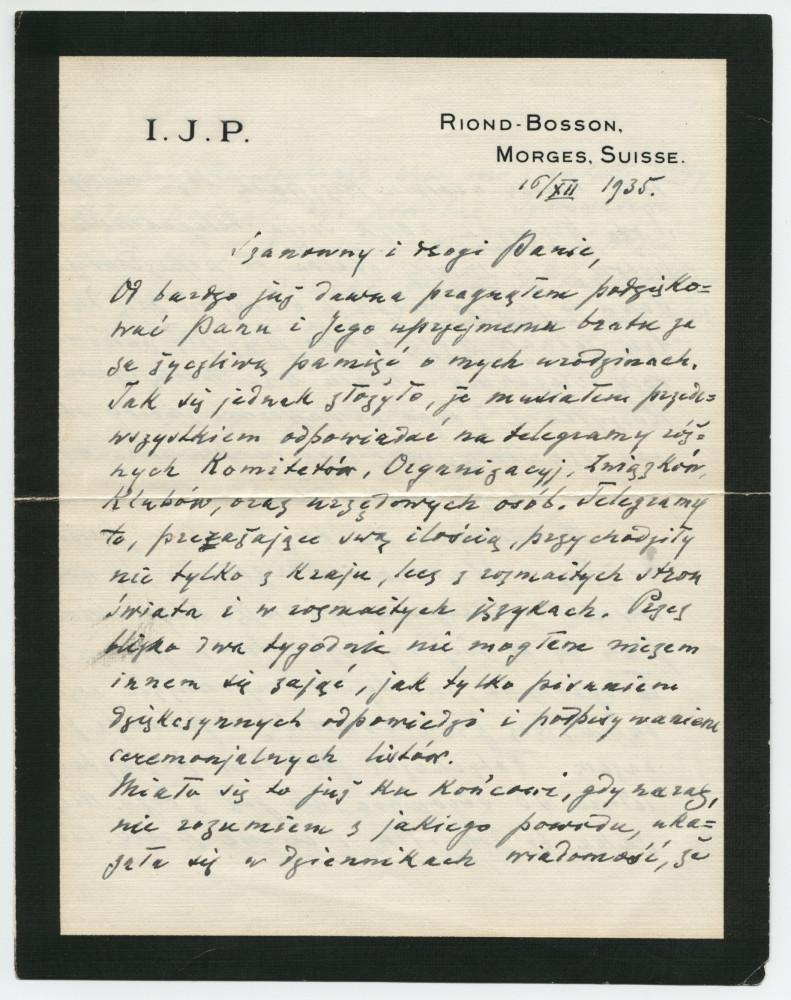 I. J. P.
RIOND-BOSSON,
MORGES, SUISSE.
16/XII 1935.
Szanowny i drogi Panie,
Od bardzo już dawna pragnąłem podzięko=
wać Panu i Jego uprzejmemu bratu za
Ich życzliwą pamięć o mych urodzinach.
Tak się jednak złożyło, że musiałem przede=
wszystkiem odpowiadać na telegramy róż=
nych Komitetów, Organizacyj, Związków,
Klubów, oraz urzędowych osób. Telegramy
te, przerażające swą ilością, przychodziły
nie tylko z Kraju, lecz z rozmaitych stron
świata i w rozmaitych językach. Przez
blisko dwa tygodnie nie mogłem niczem
innem się zająć, jak tylko pisaniem
dziękczynnych odpowiedzi i podpisywaniem
ceremonjalnych listów.
Miało się to już ku końcowi, gdy naraz,
nie rozumiem z jakiego powodu, uka=
zała się w dziennikach wiadomość, że